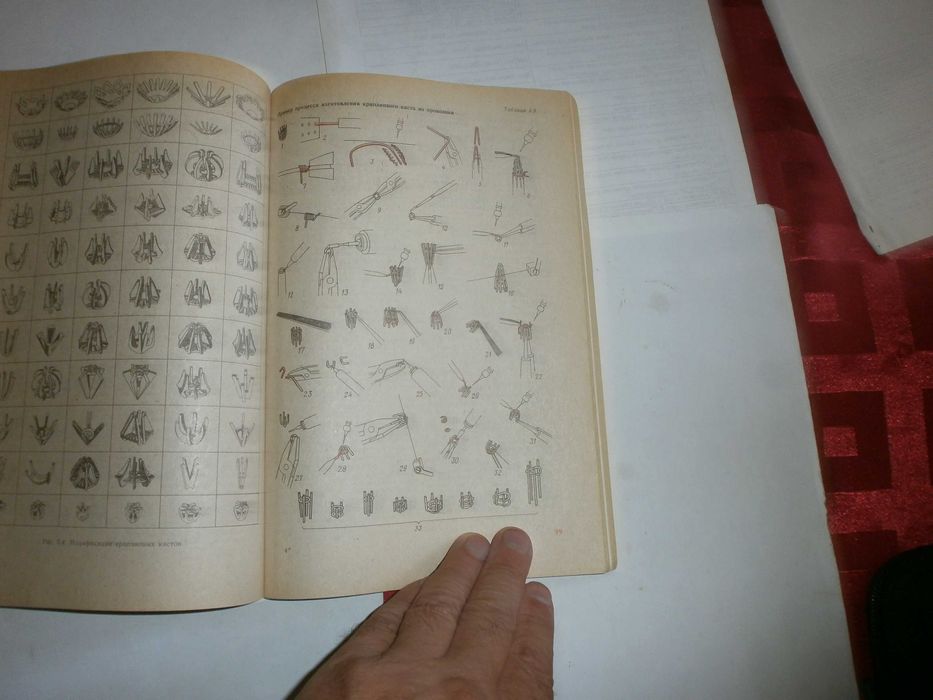 Рис. 5.6 Модификации крапановых кастов
Пример процесса изготовления крапанового каста из проволоки
Таблица 4.9
1
2
3
4
5
6
7
8
9
10
11
12
13
14
15
16
17
18
19
20
21
22
23
24
25
26
27
28
29
30
31
32
33
4*
99